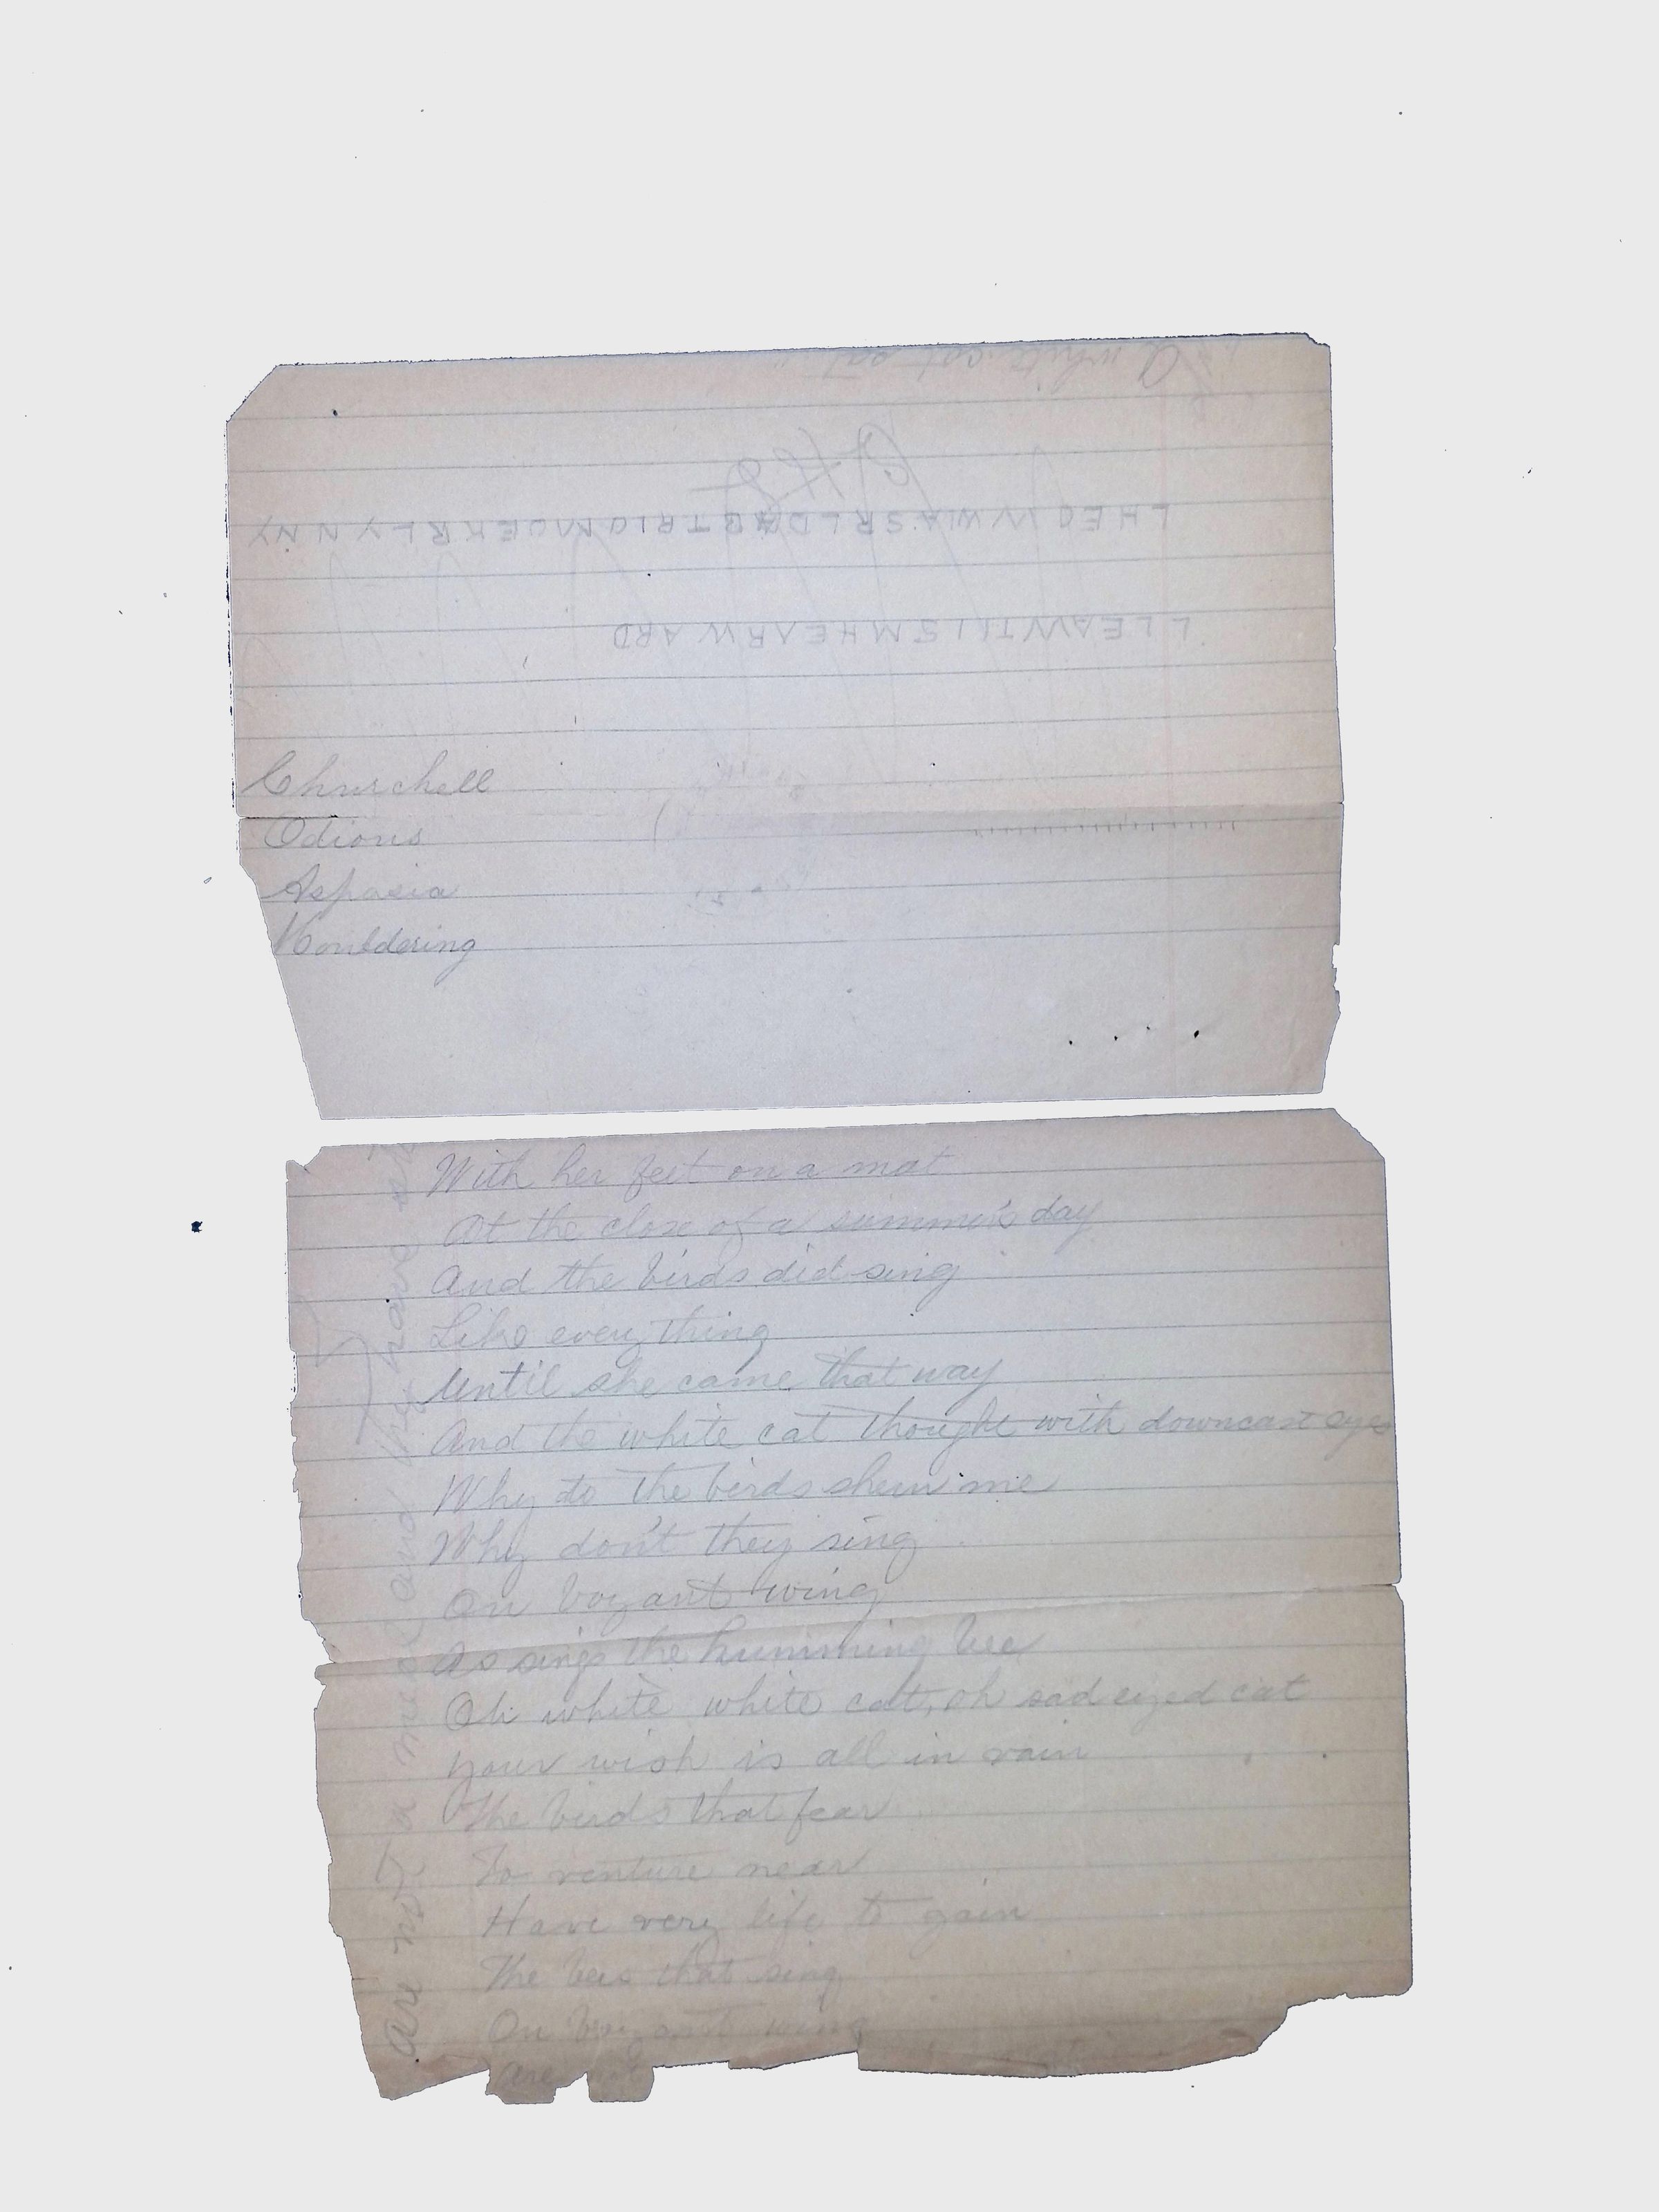 A white cat sat
LLEAWTILSMHEARWARD
Churchell
Odious
Aspasia
Mouldering
With her feet on a mat
At the close of a summer's day
And the birds did sing
Like every thing
Until she came that way
And the white cat thought with downcast eyes
Why do the birds shun me
Why don't they sing
On boyant wing
As sings the humming bee
Oh white white cat, oh sad eyed cat
Your wish is all in vain
The birds that fear
To venture near
Have very life to gain
The bees that sing
On boyant wing
Are not
are not a and have